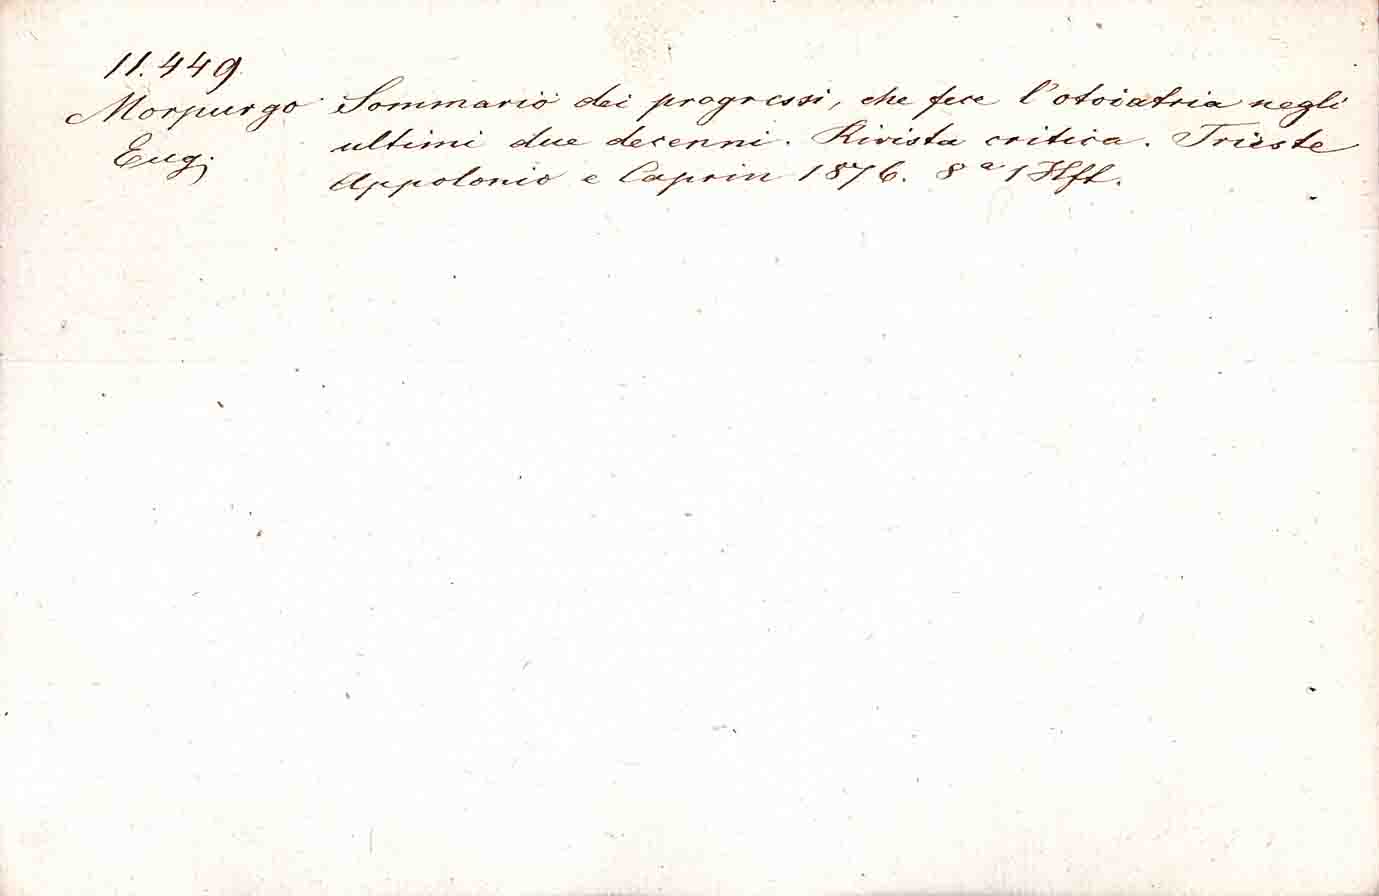 11.449
Morpurgo Sommario dei progressi, che fece l'otoiatria negli
Eug. ultimi due decenni. Rivista critica. Trieste
Appolonio e Caprin 1876. 8° 1 Hft.